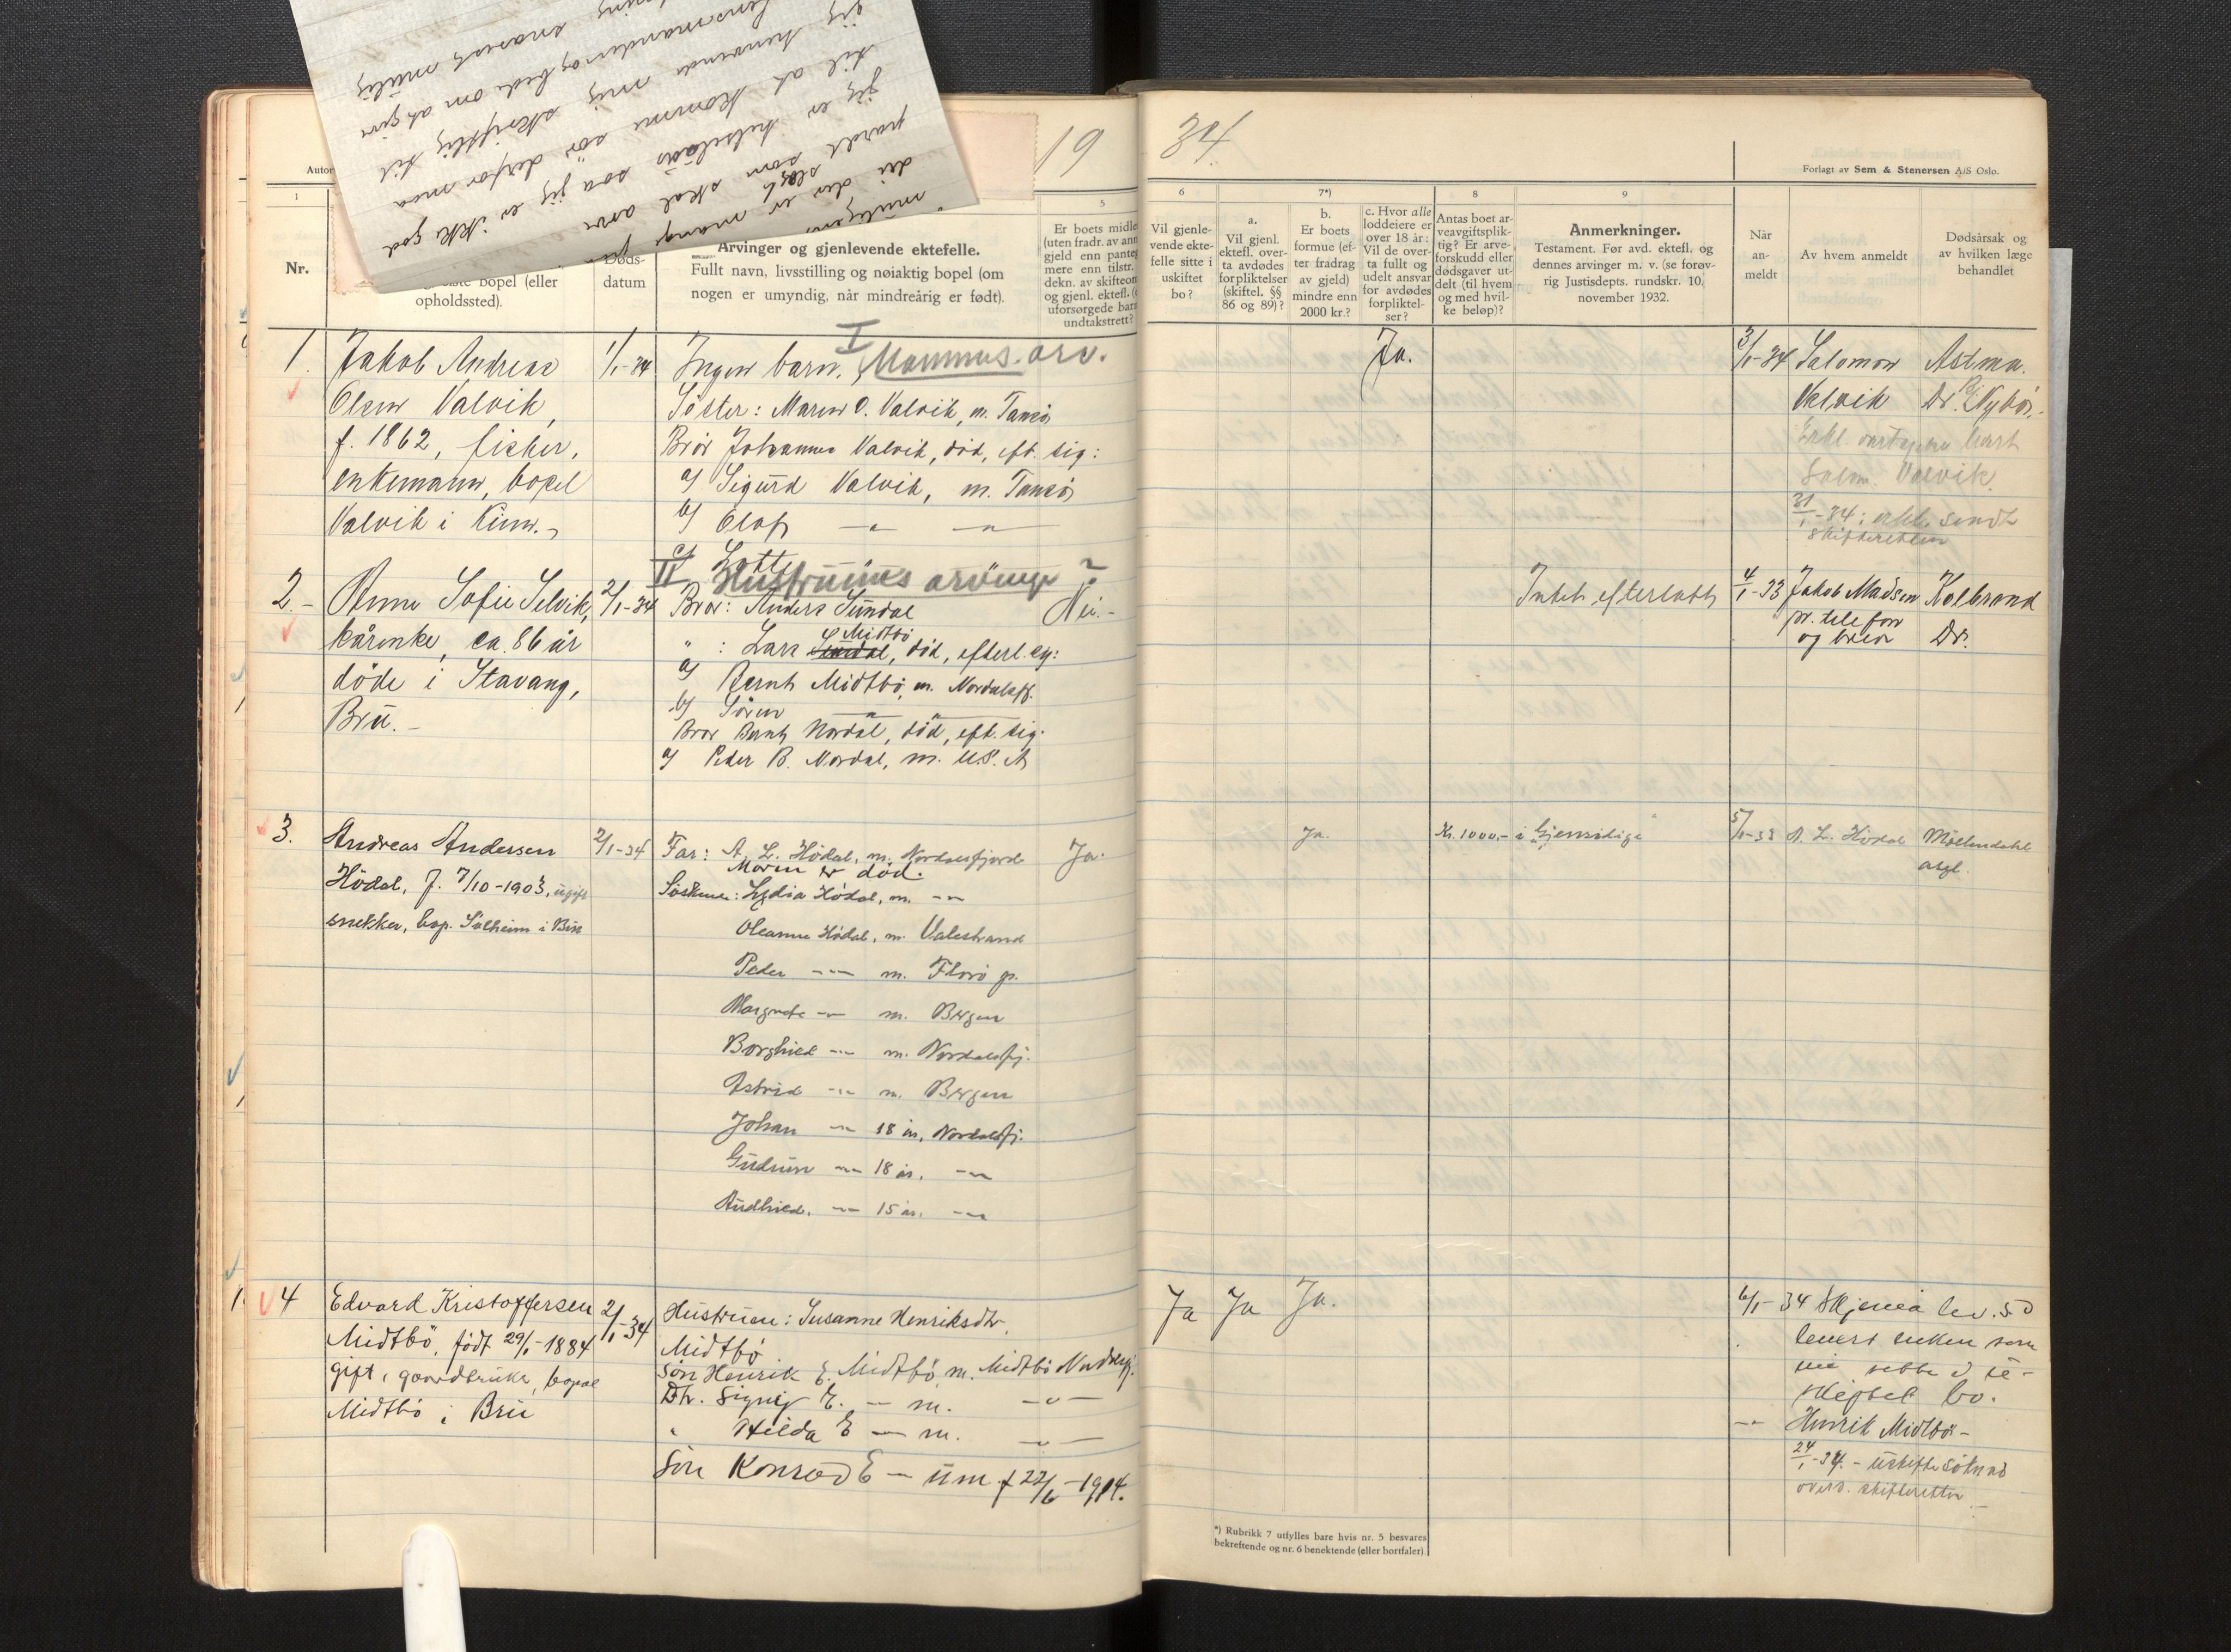 mulig
snarest
lensmanden og bede om at give
jeg henvende mig skriftlig til
til at komme sör derfor maa
jeg er helselös saa jeg er ikke god
slegt som skal arve
di der er mange
19
34.
Autor
Forlagt av Sem & Stenersen A/S Oslo.
1
5
6
7*)
8
9
Nr.
bopel (eller
opholdssted).
Døds-
datum
Arvinger og gjenlevende ektefelle.
Fullt navn, livsstilling og nøiaktig bopel (om
nogen er umyndig, når mindreårig er født).
Er boets midle
(uten fradr. av ann
gjeld enn pante
mere enn tilstr.
dekn. av skifteom
og gjenl. ektef.
uforsørgede barn
undtakstrett?
Vil gjenle-
vende ekte-
felle sitte i
uskiftet
bo?
a.
Vil gjenl.
ektefl. over-
ta avdødes
forpliktelser
(skiftel. §§
86 og 89)?
b.
Er boets
formue (ef-
ter fradrag
av gjeld)
mindre enn
2000 kr.?
c. Hvor alle
loddeiere er
over 18 år:
Vil de over-
ta fullt og
udelt ansvar
for avdødes
forpliktel-
ser?
Antas boet ar-
veavgiftsplik-
tig? Er arve-
forskudd eller
dødsgaver ut-
delt (til hvem
og med hvil-
ke beløp)?
Anmerkninger.
Testament. Før avd. ektefl. og
dennes arvinger m. v. (se forøv-
rig Justisdepts. rundskr. 10.
november 1932.
Når
an-
meldt
Av hvem anmeldt
Dødsårsak og
av hvilken læge
behandlet
1. Jakob Andreas
Olsen Valvik,
f. 1862, fisker,
enkemann, bopel
Valvik i Kinn.
1/1-34
I
Ingen barn. Mannens arv.
Söster: Maren O. Valvik, m. Tansö
Bror Johannes Valvik, död, eft. sig:
a) Sigurd Valvik, m. Tansö
b) Olaf -"- -"-
c) Lotte
II Hustruens arvinge ?
Ja.
3/1-34 Salomon
Valvik
Astma.
Dr. Nybö.
Salm. Valvik.
31/1-34: erkl. sendt
skifteretten
2.- Anne Sofie Selvik,
kårenke, ca. 86 år
döde i Stavang,
Bru.-
2/1-34
Bror: Anders Sundal
" : Lars Sundal Midtbö, död, efterl. sig:
a) Bernt Midtbö, m. Nordalsfj.
b) Sören -"-
Bror Bernt Nordal, död, eft. sig:
a) Peder B. Nordal, m. U.S.A
Nei.-
Intet efterlatt
4/1-33 Jakob Madsen
pr. telefon
og brev
Kolbrand
Dr.
3. Andreas Andersen
Hödal, f. 7/10-1903, ugift
snekker, bop. Solheim i Bru
2/1-34
Far: A. L. Hödal, m. Nordalsfjord
Moren er död.
Söskene: Lydia Hödal, m. -"-
Oleanna Hödal, m. Valestrand
Peder -"- m. Florö p.
Margrete -"- m. Bergen
Borghild -"- m. Nordalsfj.
Astrid -"- m. Bergen
Johan -"- 18 år, Nordalsfj.
Gudrun -"- 18 år. -"-
Audhild. -"- 15 år. -"-
Ja.
Ja.
Kr. 1000.- i "Gjensidige"
5/1-33 A. L. Hödal
Möllendahl
asyl.
4 Edvard Kristoffersen
Midtbö, født 29/1-1884
gift, gaardbruker, bopæl
Midtbö i Bru
2/1-34
Hustruen: Susanne Henriksdtr.
Midtbö
Sön Henrik E. Midtbö m. Midtbö Nordalsfj.
Dtr. Signy E. - m. -"-
" Hilda E - m. -"-
Sön Konrad E - um. f 22/6-1914.
Ja
Ja
Ja.
6/1-34 Skjema lev. 50
levert enken som
vil sitte i u-
skiftet bo.
-"- Henrik Midtbö-
24/1-34.- uskifte söknad
overs. skifteretten.-
*) Rubrikk 7 utfylles bare hvis nr. 5 besvares
bekreftende og nr. 6 benektende (eller bortfaler)